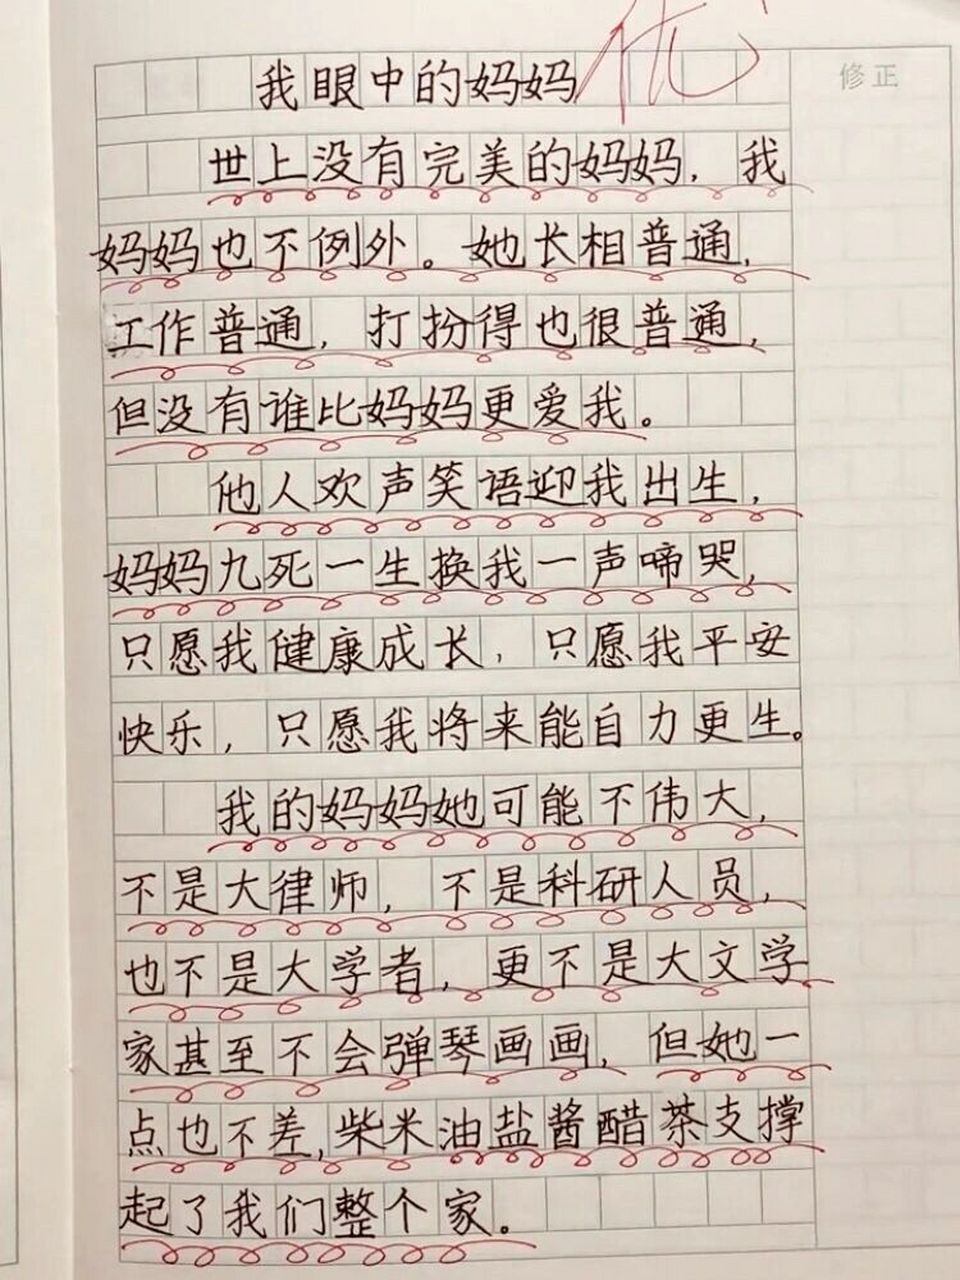 我眼中的妈妈
优
修正
世上没有完美的妈妈，我
妈妈也不例外。她长相普通，
工作普通，打扮得也很普通，
但没有谁比妈妈更爱我。
他人欢声笑语迎我出生，
妈妈九死一生换我一声啼哭，
只愿我健康成长，只愿我平安
快乐，只愿我将来能自力更生。
我的妈妈她可能不伟大，
不是大律师，不是科研人员，
也不是大学者，更不是大文学
家甚至不会弹琴画画，但她一
点也不差，柴米油盐酱醋茶支撑
起了我们整个家。